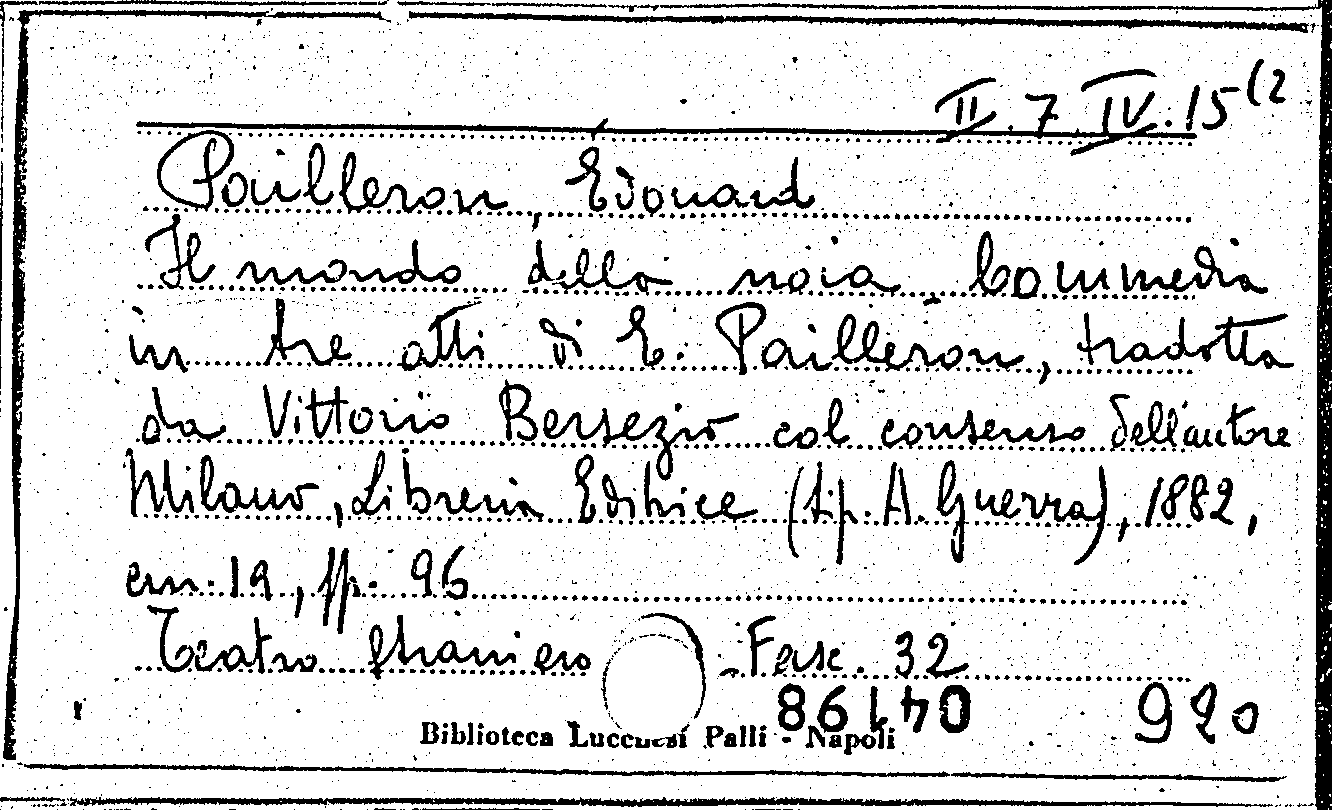 II. 7. IV. 15 (2
Pailleron, Édouard
Il mondo della noia. Commedia
in tre atti di E. Pailleron, tradotta
da Vittorio Bersezio col consenso dell'autore
Milano, Libreria Editrice (tip. A. Guerra), 1882,
cm. 19, pp. 96
Teatro straniero - Fasc. 32
04198
920
Biblioteca Lucchesi Palli - Napoli